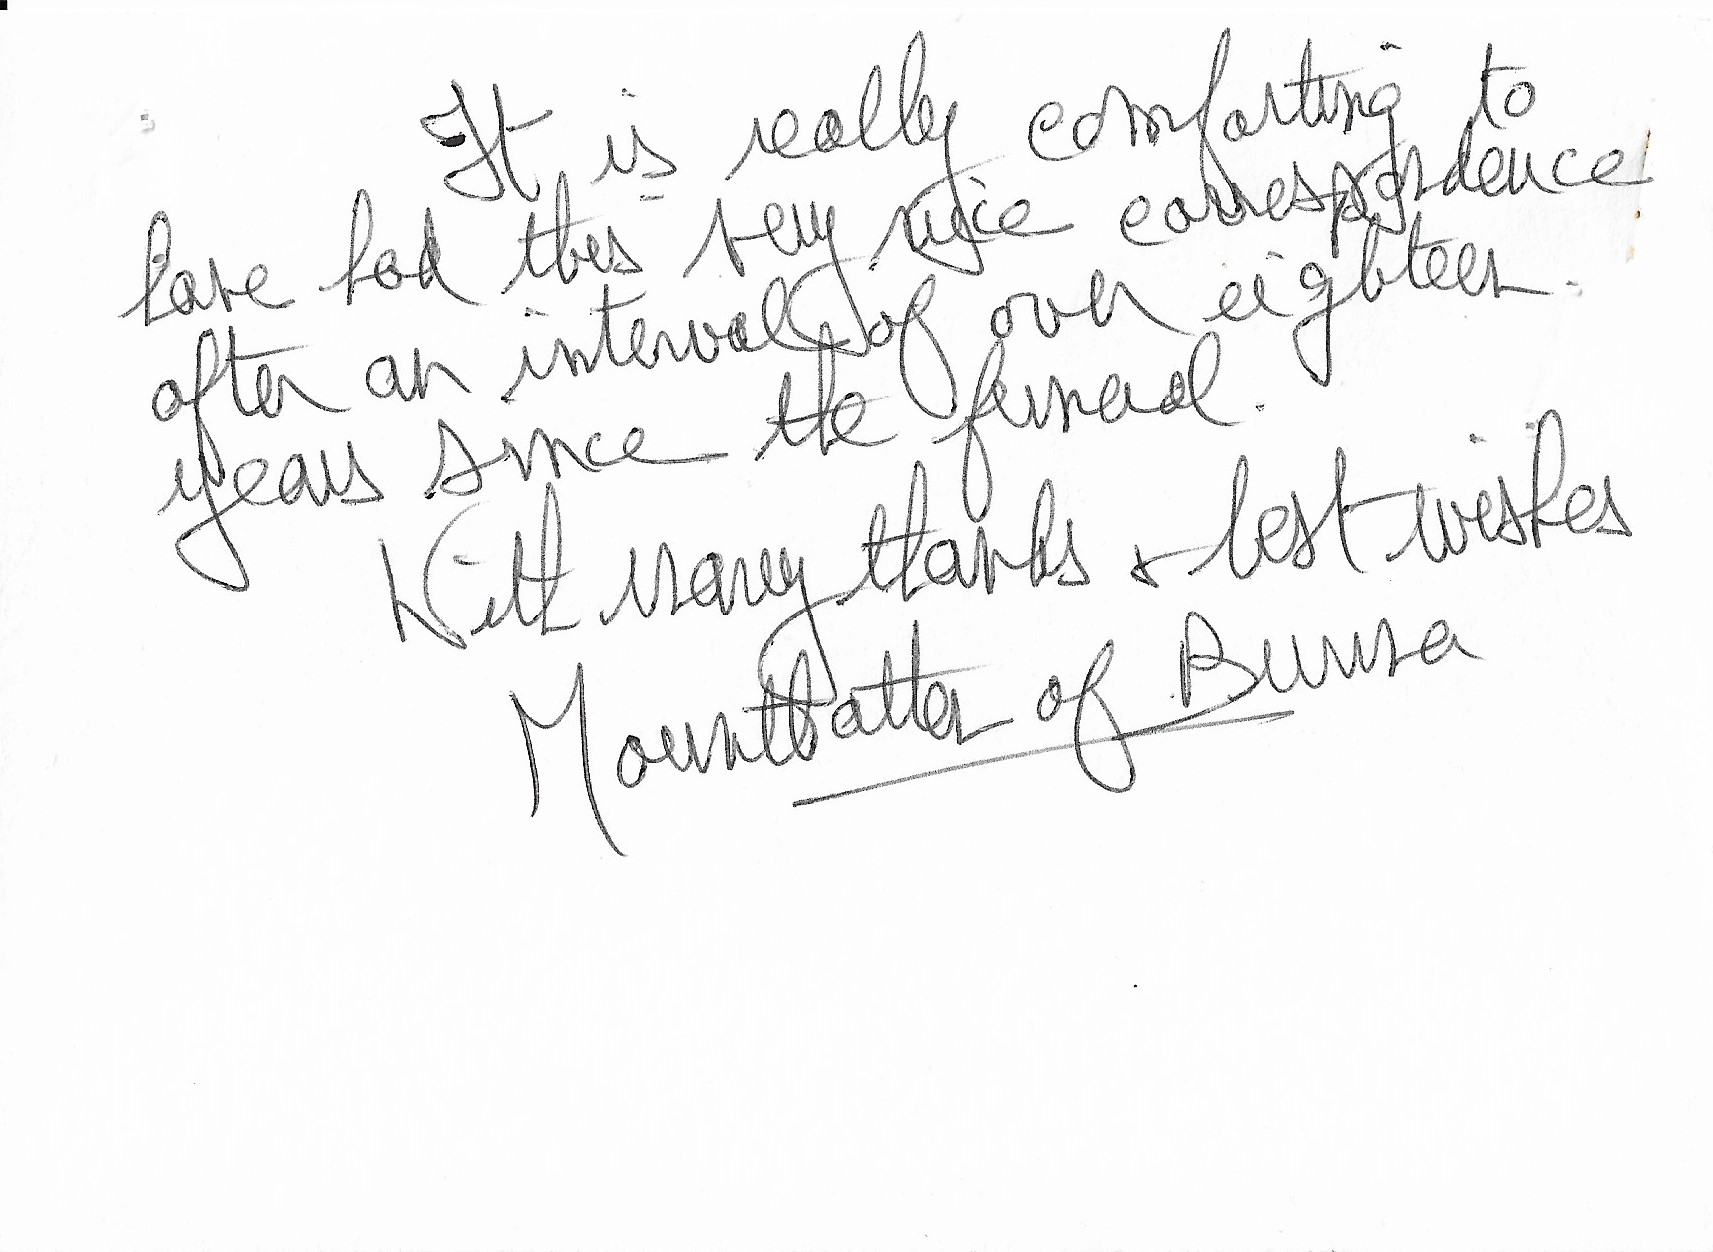 It is really comforting to
have had this very nice correspondence
after an interval of over eighteen
years since the funeral.
With many thanks & best wishes
Mountbatten of Burma